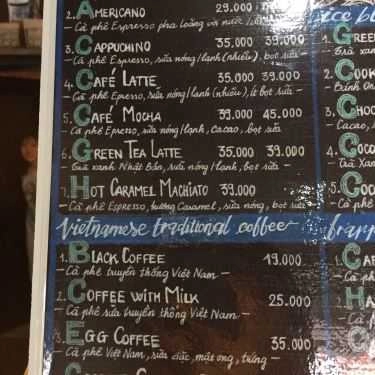 2. AMERICANO 29.000
- Cà phê Espresso pha loãng với nước
3. CAPPUCHINO 35.000 39.000
- Cà phê Espresso, sữa nóng/lạnh (nhiều), bọt sữa -
4. CAFÉ LATTE 35.000 39.000
- Cà phê Epresso, sữa nóng/lạnh (nhiều), ít bọt sữa -
5. CAFÉ MOCHA 39.000 45.000
- Cà phê Epresso, sữa nóng/lạnh, Cacao, bọt sữa
6. GREEN TEA LATTE 35.000 39.000
- Trà xanh Nhật Bản, sữa nóng/lạnh, bọt sữa -
7. HOT CARAMEL MACHIATO 39.000
- Cà phê Espresso, hương Caramel, sữa nóng, bọt sữa -
Vietnamese traditional coffee
1. BLACK COFFEE 19.000
- Cà phê truyền thống Việt Nam -
2. COFFEE WITH MILK 25.000
- Cà phê sữa truyền thống Việt Nam -
3. EGG COFFEE 35.000
- Cà phê Việt Nam, sữa đặc, mật ong, trứng -
ice bl
1. G
Trà xanh
2. COOK
3. CHO
Cacao,
4. COCO
Trà Xan
5. COC
frapp
1. CA
2. HA
3.